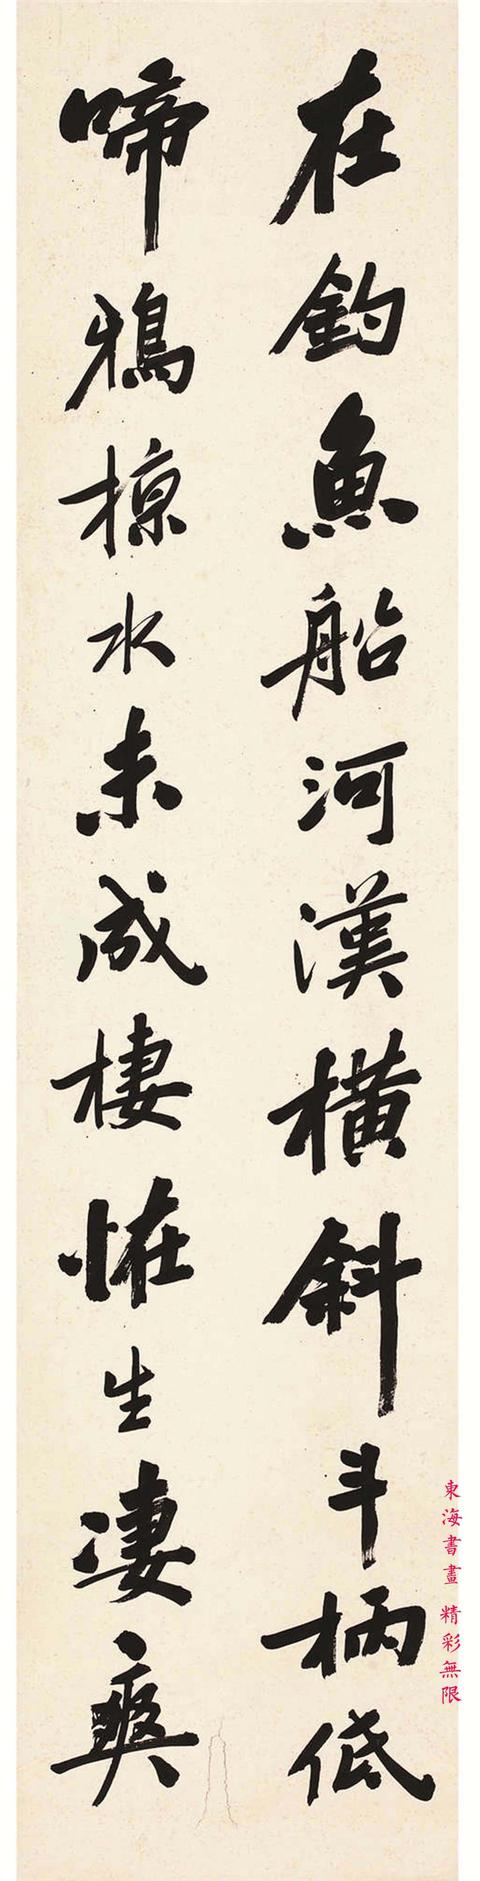 在釣魚船河漢橫斜斗柄低
啼鴉掠水未成棲怪生淒爽
東海書畫 精彩無限